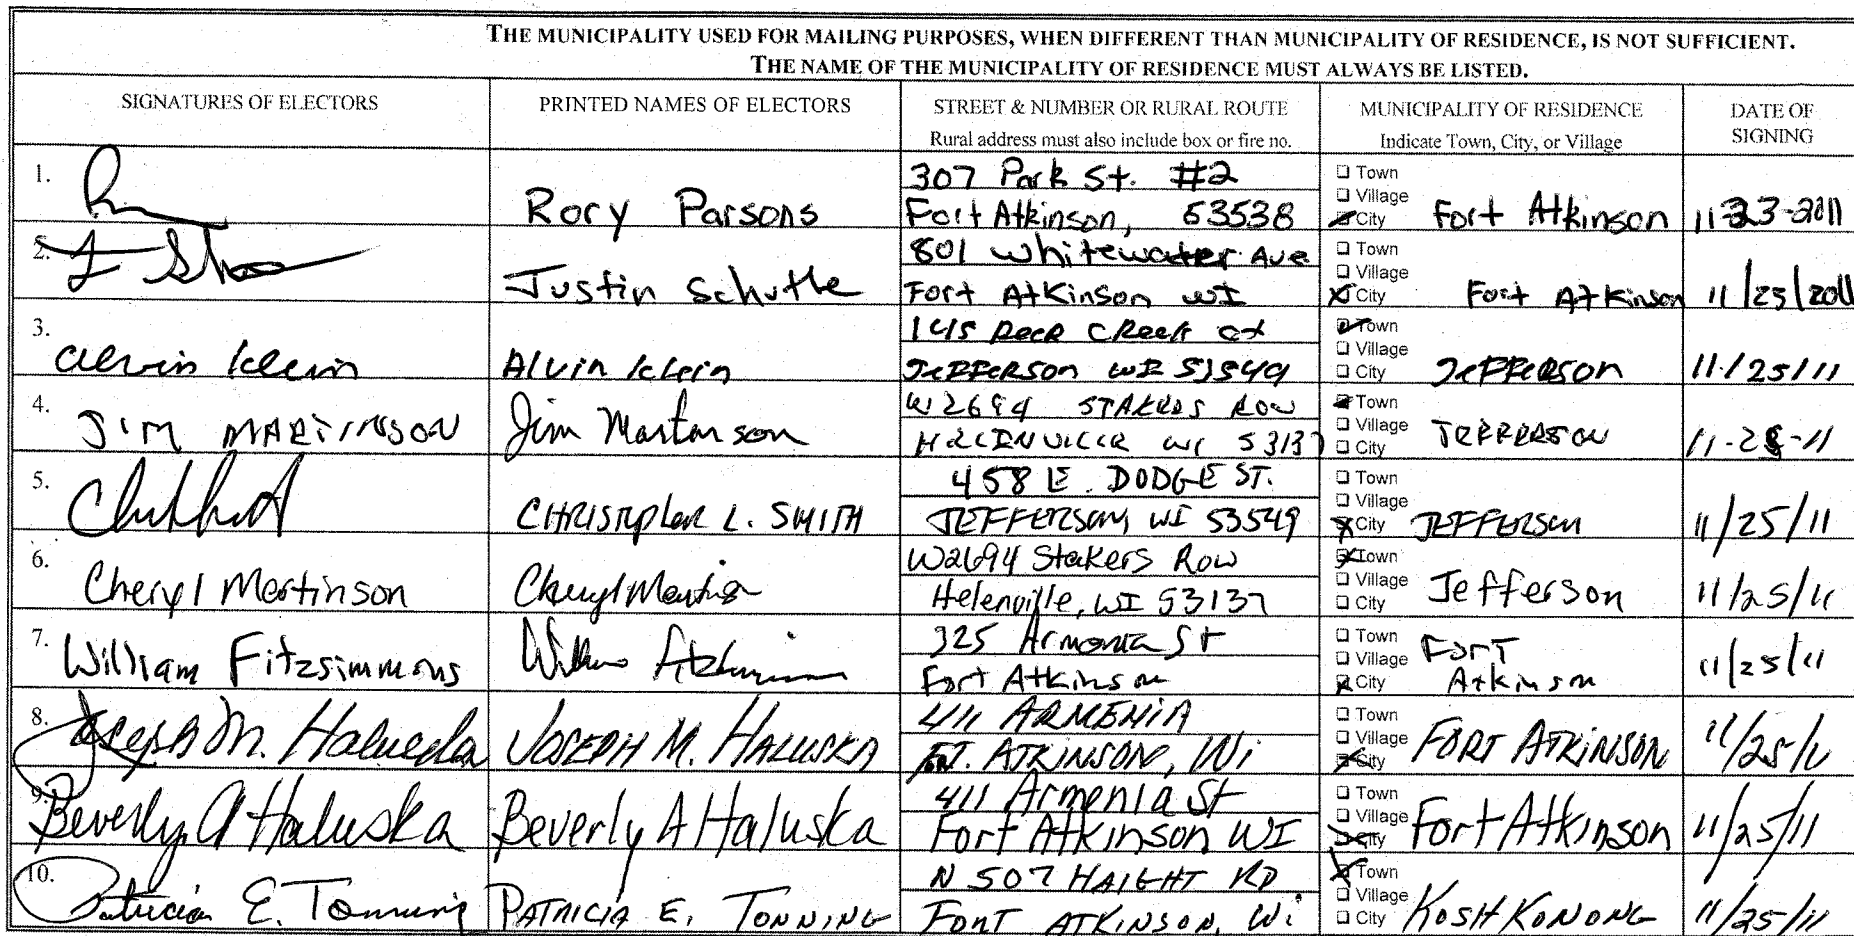 THE MUNICIPALITY USED FOR MAILING PURPOSES, WHEN DIFFERENT THAN MUNICIPALITY OF RESIDENCE, IS NOT SUFFICIENT.
THE NAME OF THE MUNICIPALITY OF RESIDENCE MUST ALWAYS BE LISTED.
SIGNATURES OF ELECTORS
PRINTED NAMES OF ELECTORS
STREET & NUMBER OR RURAL ROUTE
Rural address must also include box or fire no.
MUNICIPALITY OF RESIDENCE
Indicate Town, City, or Village
DATE OF
SIGNING
1.
Rory Parsons
307 Park St. #2
Fort Atkinson, 53538
Town
Village
City
Fort Atkinson
11-23-2011
2.
Justin Schutte
801 Whitewater Ave
Fort Atkinson WI
Town
Village
City
Fort Atkinson
11/25/2011
3.
Alvin Klein
Alvin Klein
Deer Creek ct
Jefferson WI 53549
Town
Village
City
Jefferson
11/25/11
4.
JIM MARTINSON
Jim Martinson
W2694 STAKERS ROW
WI 53137
Town
Village
City
JEFFERSON
5.
CHRISTOPHER L. SMITH
458 E. DODGE ST.
JEFFERSON, WI 53549
Town
Village
City
JEFFERSON
11/25/11
6.
Cheryl Martinson
Cheryl Martinson
W2694 Stakers Row
Helenville, WI 53137
Town
Village
City
Jefferson
11/25/11
7.
William Fitzsimmons
William Fitzsimmons
325 Armenia St
Fort Atkinson
Town
Village
City
Fort
Atkinson
11/25/11
8.
Joseph M. Haluska
JOSEPH M. HALUSKA
411 ARMENIA
FT. ATKINSON, Wi
Town
Village
City
FORT ATKINSON
11/25/11
9.
Beverly A Haluska
Beverly A Haluska
411 Armenia St
Fort Atkinson WI
Town
Village
City
Fort Atkinson
11/25/11
10.
Patricia E. Tonning
PATRICIA E. TONNING
N507 HAIGHT RD
FORT ATKINSON, Wi
Town
Village
City
KOSHKONONG
11/25/11